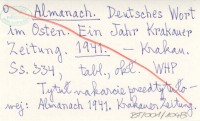 Almanach. Deutsches Wort
im Osten. Ein Jahr Krakauer
Zeitung. 1941. – Krakau.
Ss. 334, tabl., okł. WHP
Tytuł na karcie przedtytuło
wej: Almanach 1941. Krakauer Zeitung.